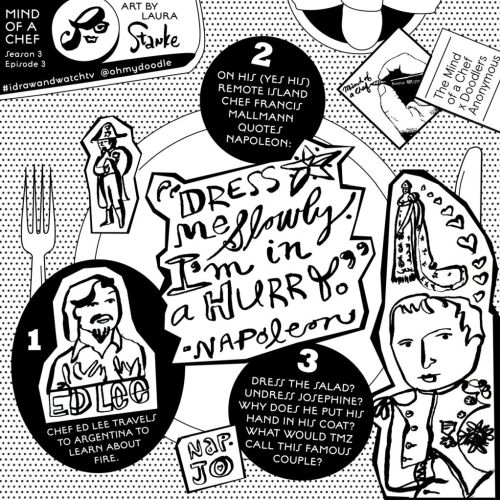 MIND
OF A
CHEF
Season 3
Episode 3
ART BY
LAURA
Stanke
#idrawandwatchtv @ohmydoodle
2
ON HIS (YES HIS)
REMOTE ISLAND
CHEF FRANCIS
MALLMANN
QUOTES
NAPOLEON:
Mind of
a Chef
The Mind
of a Chef
x Doodlers
Anonymous
"DRESS
Me Slowly.
I'm in
a HURRY."
-NAPOLeon
1
ED LEE
CHEF ED LEE TRAVELS
TO ARGENTINA TO
LEARN ABOUT
FIRE.
3
DRESS THE SALAD?
UNDRESS JOSEPHINE?
WHY DOES HE PUT HIS
HAND IN HIS COAT?
WHAT WOULD TMZ
CALL THIS FAMOUS
COUPLE?
NAP.
JO